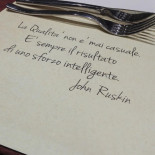 La Qualita' non e' mai casuale.
E' sempre il risultato
di uno sforzo intelligente.
John Ruskin